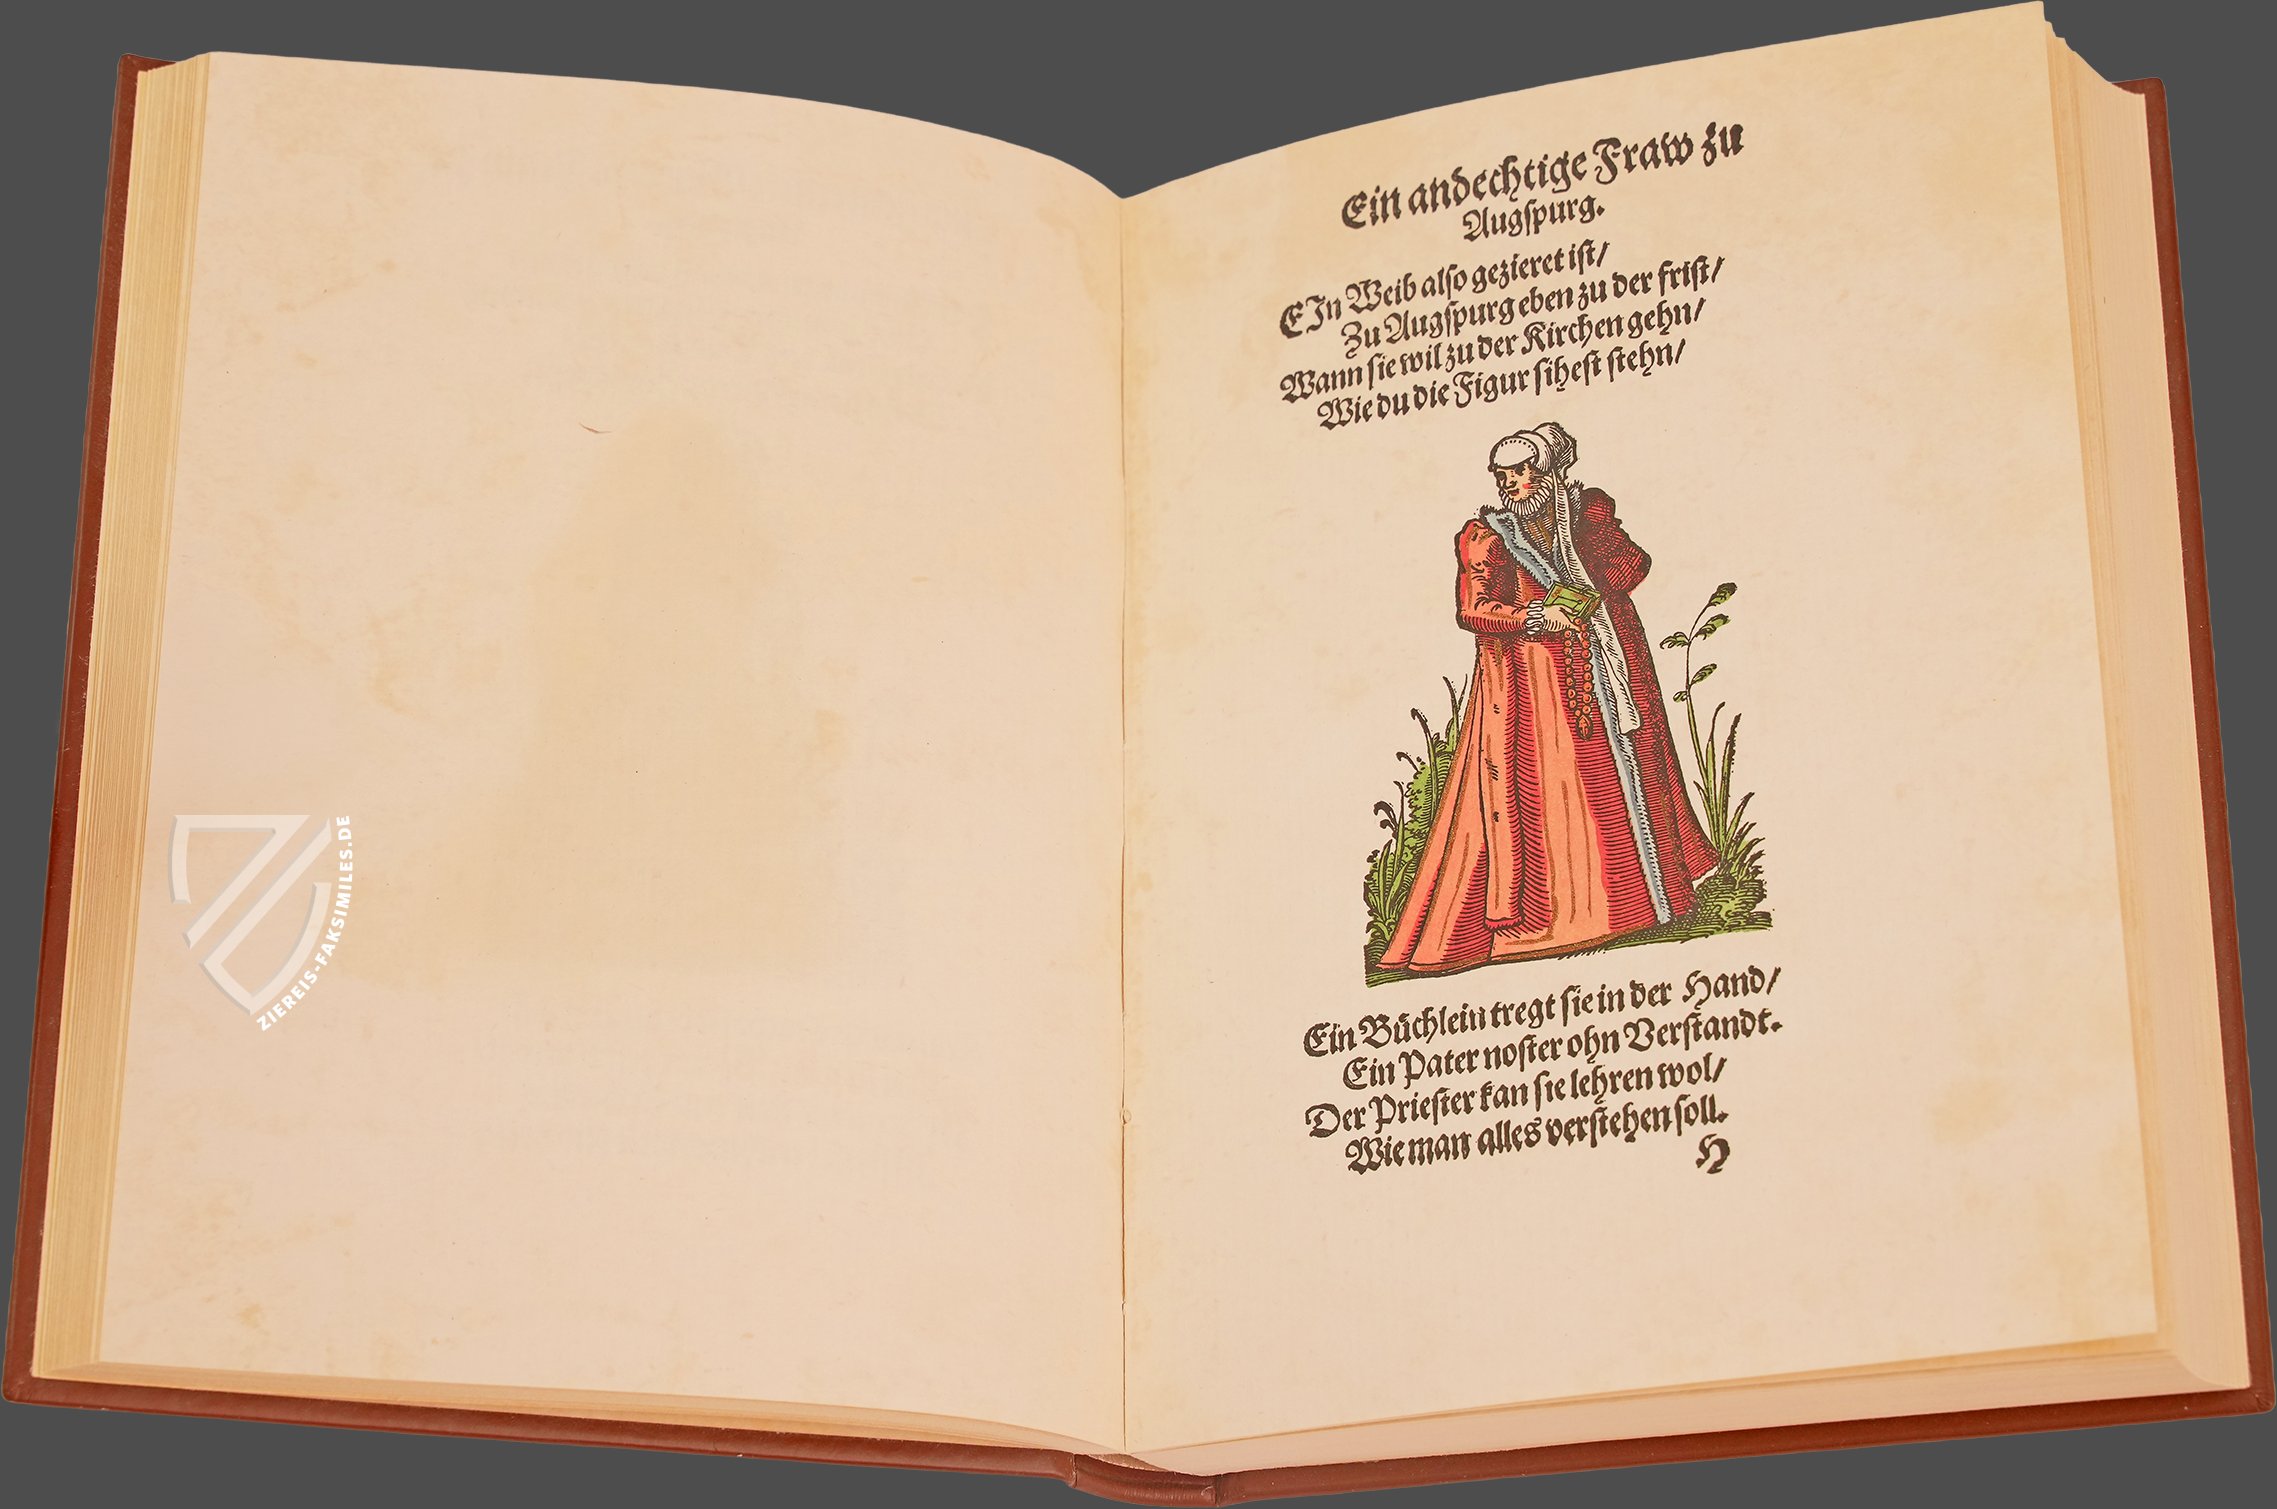 Ein andechtige Fraw zu
Augſpurg.
EIn Weib alſo gezieret iſt/
Zu Augſpurg eben zu der friſt/
Wann ſie wil zu der Kirchen gehn/
Wie du die Figur ſiheſt ſtehn/
Ein Büchlein tregt ſie in der Hand/
Ein Pater noſter ohn Verſtandt.
Der Prieſter kan ſie lehren wol/
Wie man alles verſtehen ſoll.
H
ZIEREIS-FAKSIMILES.DE